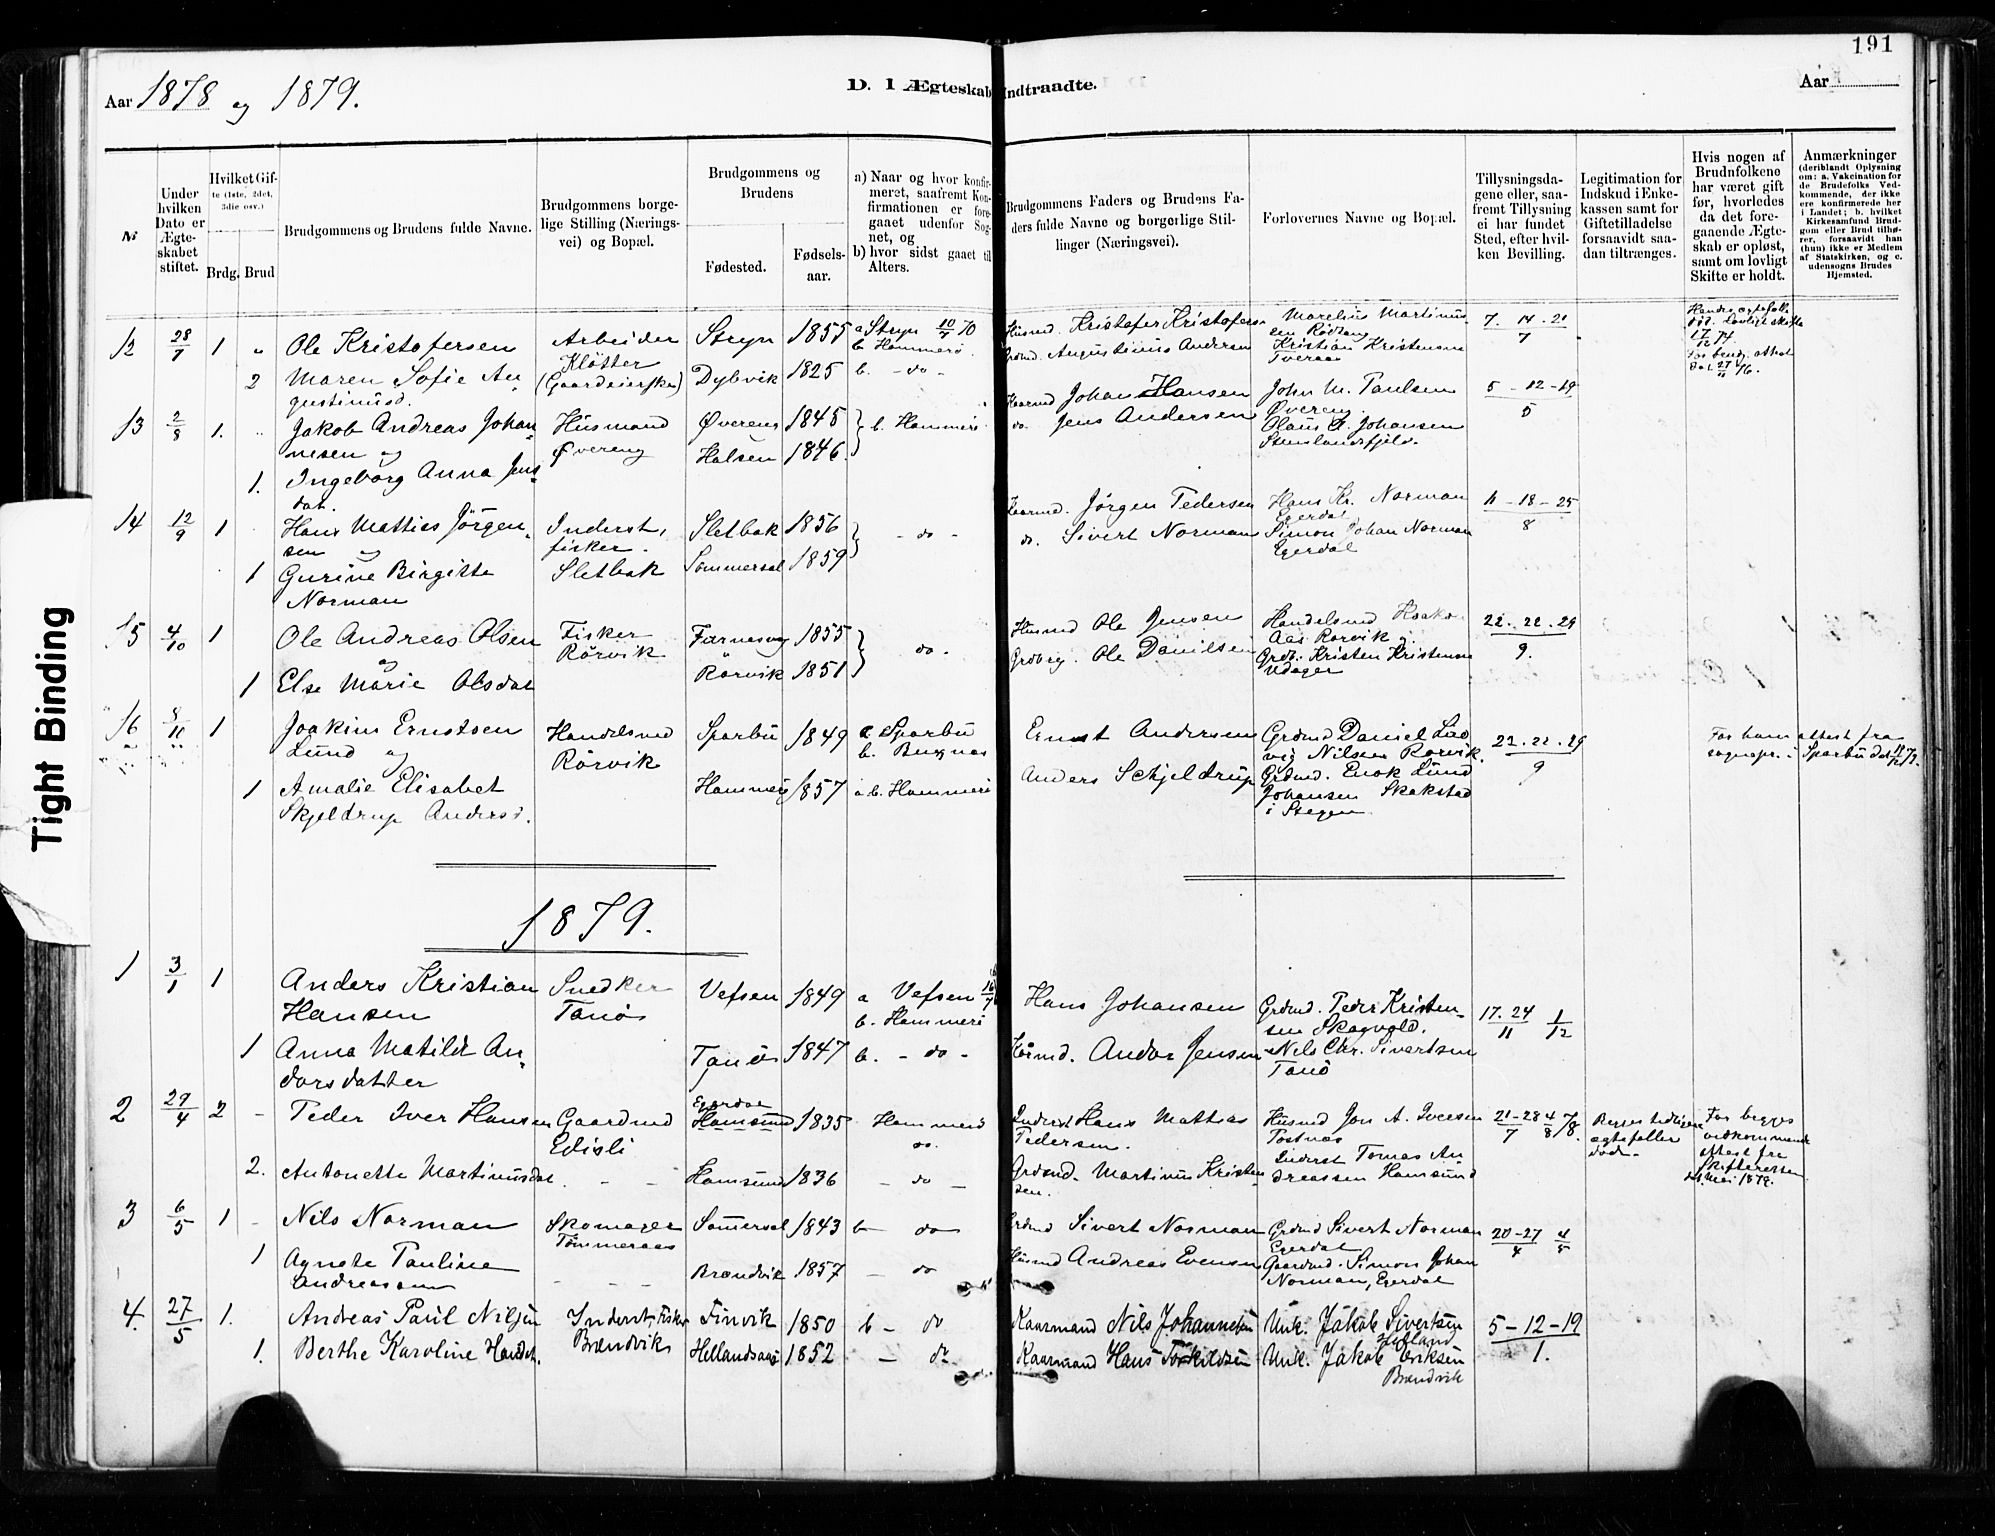 191
Aar 1878 og 1879.
D. I Ægteskab Indtraadte.
Aar
No
Under hvilken Dato er Ægteskabet stiftet.
Hvilket Gifte (1ste, 2det, 3die osv.)
Brdg. Brud
Brudgommens og Brudens fulde Navne.
Brudgommens borgelige Stilling (Næringsvei) og Bopæl.
Brudgommens og Brudens
Fødested.
Fødselsaar.
a) Naar og hvor konfirmeret, saafremt Konfirmationen er foregaaet udenfor Sognet, og
b) hvor sidst gaaet til Alters.
Brudgommens Faders og Brudens Faders fulde Navne og borgerlige Stillinger (Næringsvei).
Forlovernes Navne og Bopæl.
Tillysningsdagene eller, saafremt Tillysning ei har fundet Sted, efter hvilken Bevilling.
Legitimation for Indskud i Enkekassen samt for Giftetilladelse forsaavidt saadan tiltrænges.
Hvis nogen af Brudnfolkene har været gift før, hvorledes da det foregaaende Ægteskab er opløst, samt om lovligt Skifte er holdt.
Anmærkninger (deriblandt Oplysning om: a. Vakcination for de Brudefolks Vedkommende, der ikke ere konfirmerede her i Landet; b. hvilket Kirkesamfund Brudgom eller Brud tilhører, forsaavidt han (hun) ikke er Medlem af Statskirken, og c. udensogns Brudes Hjemsted.
12 28/7 1 " Ole Kristofersen Arbeider Stryn 1855 a Stryn 10/7 70 Husmd. Kristofer Kristofers Marelius Martinus- 7. 14. 21
b. Hammerö sen Rödtang 7
Klötter Grdmd. Augustinus Andersen Kristian Kristensen
2 Maren Sofie Au- (Gaardeierske) Dybvik 1825 b. - do - Tveraa
gustinusd.
13 2/8 1. " Jakob Andreas Johan- Husmand Øvereng 1845 b. Hammerö Johan Hansen John M. Paulsen 5 - 12 - 19
nesen og Øvereng Halsen 1846. do Jens Andersen Øvereng 5
1. Ingeborg Anna Jens- Olaus Johansen
dat. Stenslandsfjeld.
14 12/9 1 Hans Mattias Jörgen- Inderst, Sletbak 1856 - do - Jörgen Pedersen Hans Kr. Norman 11 - 18 - 25
sen og fisker. Egerdal 8
1 Gurine Birgitte Sletbak Sommersel 1859 do. Sivert Norman Simon Johan Norman
Norman Egerdal
15 4/10 1 Ole Andreas Olsen Fisker 1855 do - Husmd Ole Jensen Handelsmd 22. 22. 29
og Rörvik Aas Rörvik 9.
1 Else Marie Olsdat Rörvik 1851 Ole Danilsen Grdb. Kristen Kristensen
16 8/10 1 Joakim Ernstsen Handelsmd Sparbu 1849 a Sparbu Ernst Andersen Grdmd Daniel Lud- 22. 22. 29 For ham attest fra
Lund og Rörvik b. Buxnæs vig Nilsen Rörvik. 9 sognepr. i Sparbu
1 Amalie Elisabet Hammerö 1857 a b. Hammerö Anders Schjeldrup Grdmd. Enok Lund
Skjeldrup Andersd. Johansen Skakstad
i Stegen
1879.
1 3/1 1 Anders Kristian Snedker Vefsen 1849 a Vefsen Hans Johansen Grdmd. Peder Kristen- 17. 24 1
Hansen Tanö b. Hammerö sen Skagvold. 11 12
1 Anna Matilde An- Tanö 1847 b. - do - Andor Jensen Nils Chr. Sivertsen
dorsdatter Tanö
2 29/4 2 - Peder Iver Hansen Gaardmd Egerdal Hamsund 1835 Hammerö Inderst Hans Mattias Husmd Jon A. Iversen 21-28 4 78. Begges tidligere For begges
Edisli do. Pedersen. 7 8 ægtefæller vedkommende
2. Antonette Martinusdat. - - Hamsund 1836 - do - Grdmd. Martinus Kristen- Inderst Tomas An- död- attest fra
sen. dreassen Hamsund Skifteretten
Mai 1878.
3 6/5 1 - Nils Norman Skomager Sommersel 1843 b - do Grdmd Sivert Norman Grdmd Sivert Norman 20-27 4
Tömmeraas Egerdal 4 5
1 Agnete Pauline - - - Brændvik 1857 - do Husmd Andreas Evensen Gaardmd. Simon Johan
Andreassen Norman, Egerdal
4. 27/5 1. Andreas Paul Nilsen Inderst, Fisker Finvik 1850 b - do Kaarmand Nils Johannesen Unk. Jakob Sivertsen 5 - 12 - 19
Brændvik Helland 1.
1. Berthe Karoline Hansdt. Hellandsaas 1852 - do Kaarmand Hans Torkildsen Unk. Jakob Eriksen
Brændvik
Tight Binding